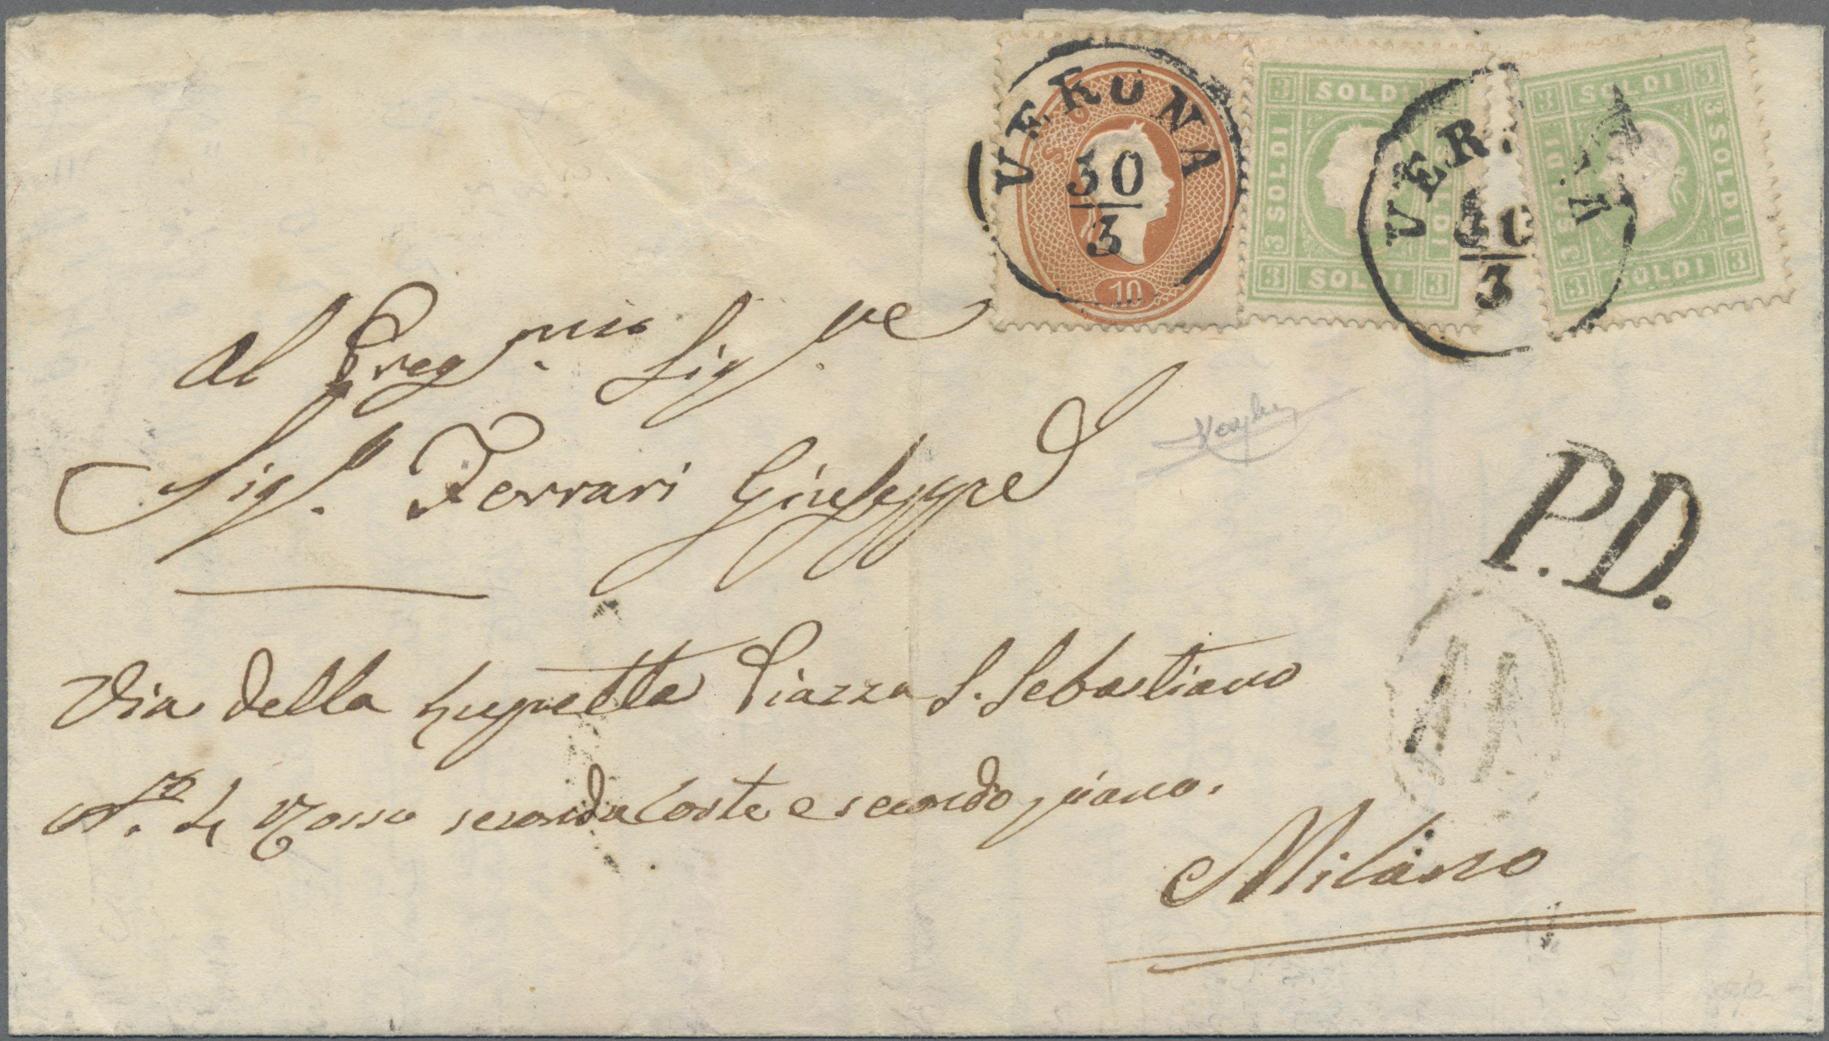 VERONA
30
3
10
3 SOLDI 3
SOLDI
SOLDI
3 SOLDI 3
VER A
30
3
3 SOLDI 3
SOLDI
SOLDI
3 SOLDI 3
Al Preg.mo Sig.re
Sig.r Ferrari Giuseppe
P.D.
Via della Lupetta Piazza S. Sebastiano
N.o 4 Rosso seconda Corte e secondo piano.
Milano